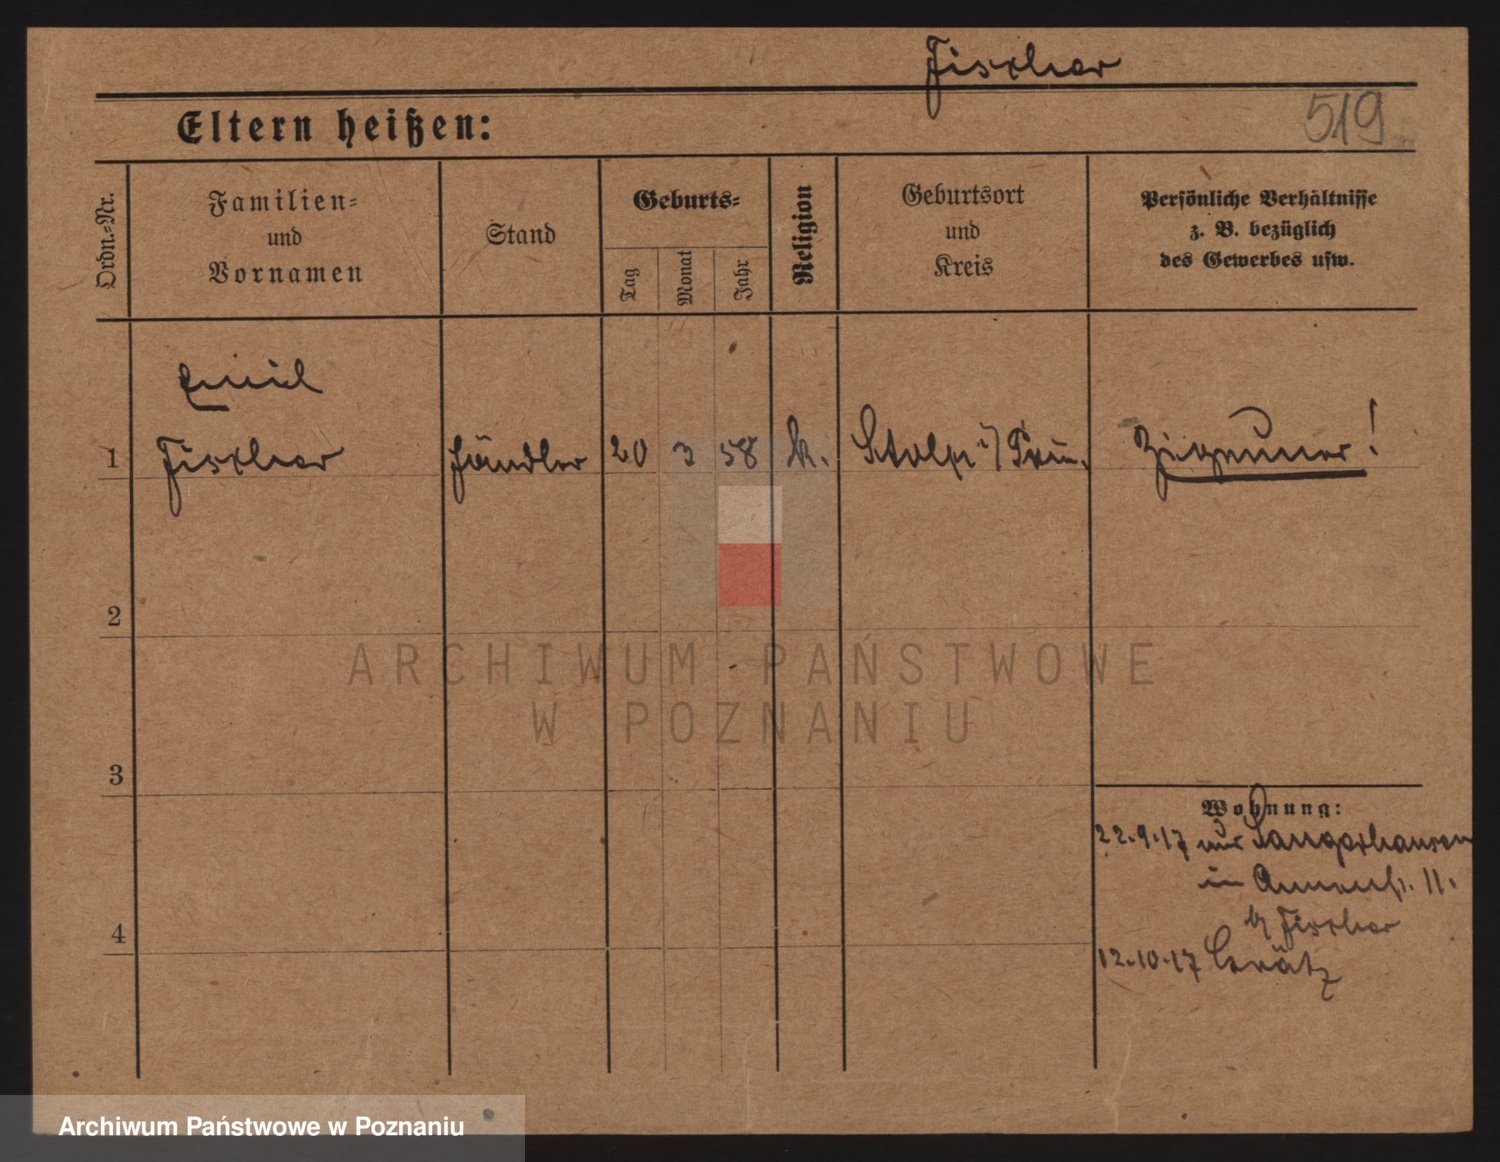 Fischer
519
Eltern heißen:
Ordn.-Nr.
Familien-
und
Vornamen
Stand
Geburts-
Tag
Monat
Jahr
Religion
Geburtsort
und
Kreis
Persönliche Verhältnisse
z. B. bezüglich
des Gewerbes usw.
Emil
1 Fischer Händler 20 3 58 k. Stolp i/ Zigeuner!
2
3
4
Wohnung:
22.9.17 aus Sangerhausen
in 11.
b/ Fischer
12.10.17 Grätz
ARCHIWUM PAŃSTWOWE
W POZNANIU
Archiwum Państwowe w Poznaniu